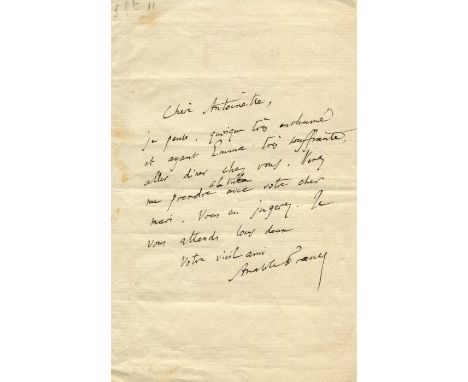 Chère Antoinette,
je pense, quoique très enrhumé
et ayant Emma très souffrante,
aller dîner chez vous. Venez
à la Villa
me prendre avec votre cher
mari. Vous en jugerez. Je
vous attends tous deux
Votre vieil ami
Anatole France